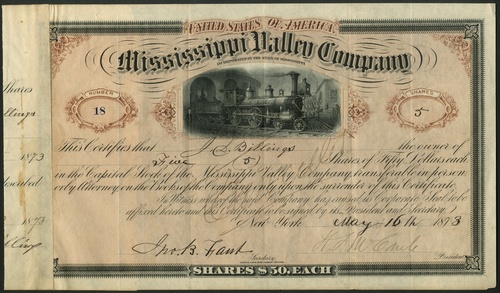 UNITED STATES OF AMERICA
Mississippi Valley Company
INCORPORATED BY THE STATE OF MISSISSIPPI
NUMBER
18
SHARES
5
Shares
Billings
1873
1873
This Certifies that J. S. Billings the owner of
Five (5) Shares of Fifty Dollars each
in the Capital Stock of the Mississippi Valley Company, transferable in person
or by Attorney on the Books of the Company only upon the surrender of this Certificate.
In Witness whereof the said Company has caused its Corporate Seal to be
affixed hereto and this Certificate to be signed by its President and Secretary
New York May 16th 1873
Jno. B. Fant
Secretary
President
SHARES $50. EACH